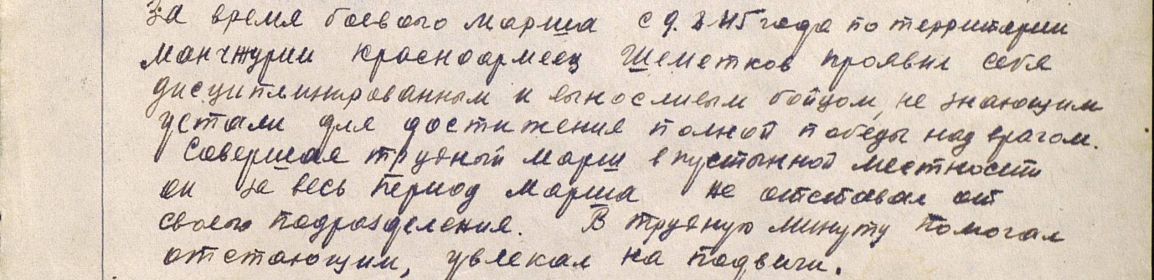 За время боевого марша с 9.8 45 года по территории
Манчжурии красноармеец Шеметков проявил себя
дисциплинированным и выносливым бойцом, не знающим
устали для достижение полной победы над врагом.
Совершая трудный марш в пустынной местности
он за весь период марша не отставал от
своего подразделения. В трудную минуту помогал
отстающим, увлекал на подвиги.